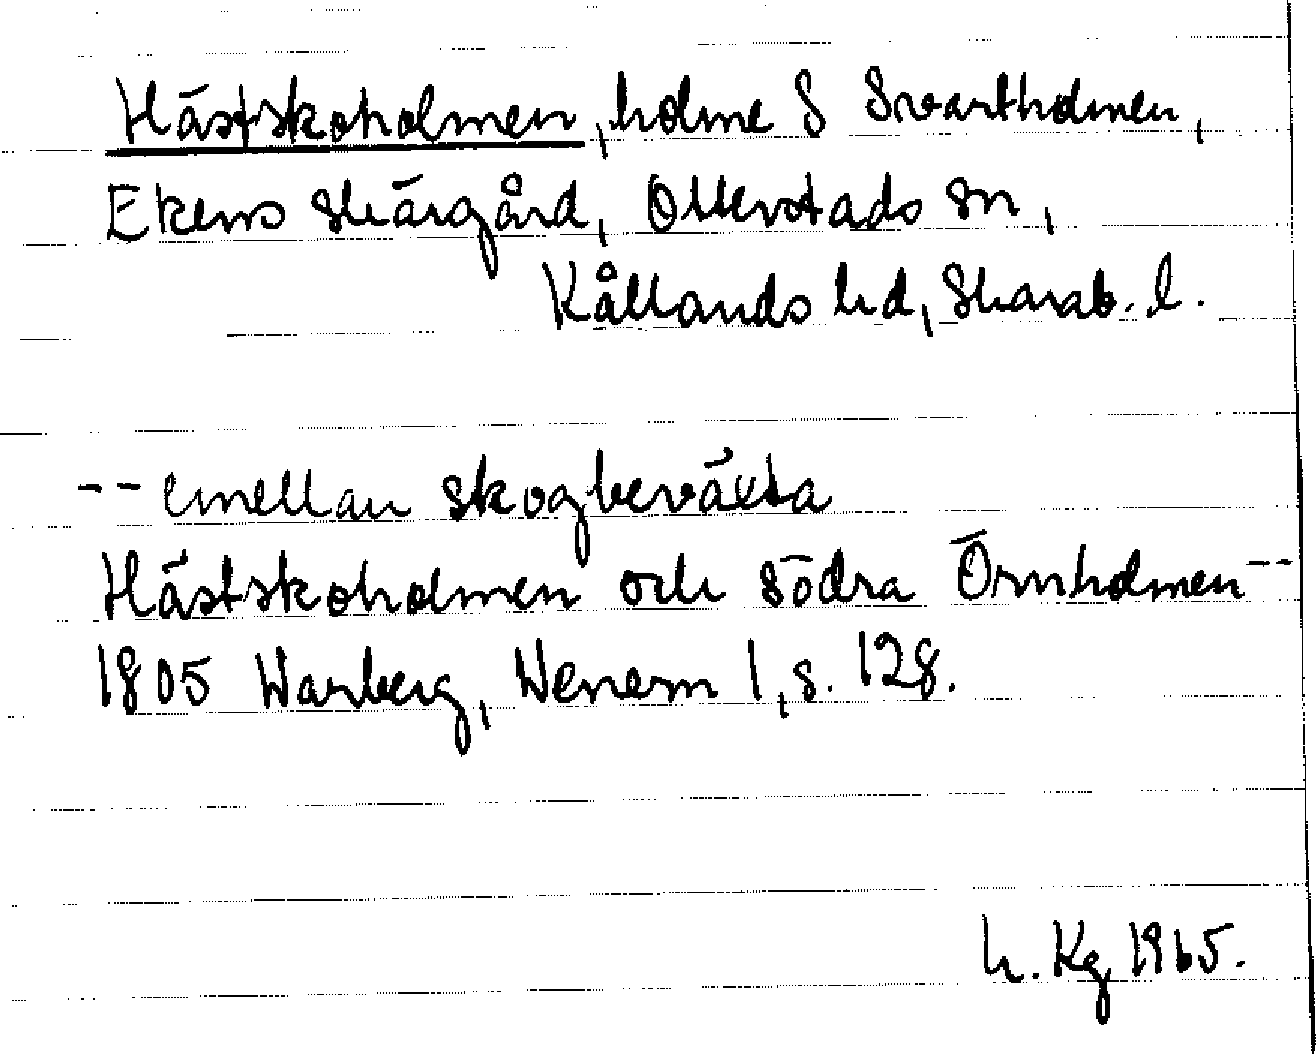 Hästskoholmen, holme S Svartholmen,
Ekens skärgård, Otterstads sn,
Kållands hd, Skarab. l.
-- emellan skogbeväxta
Hästskoholmen och södra Örnholmen --
1805 Warberg, Wenern 1, s. 128.
h. Kg 1965.